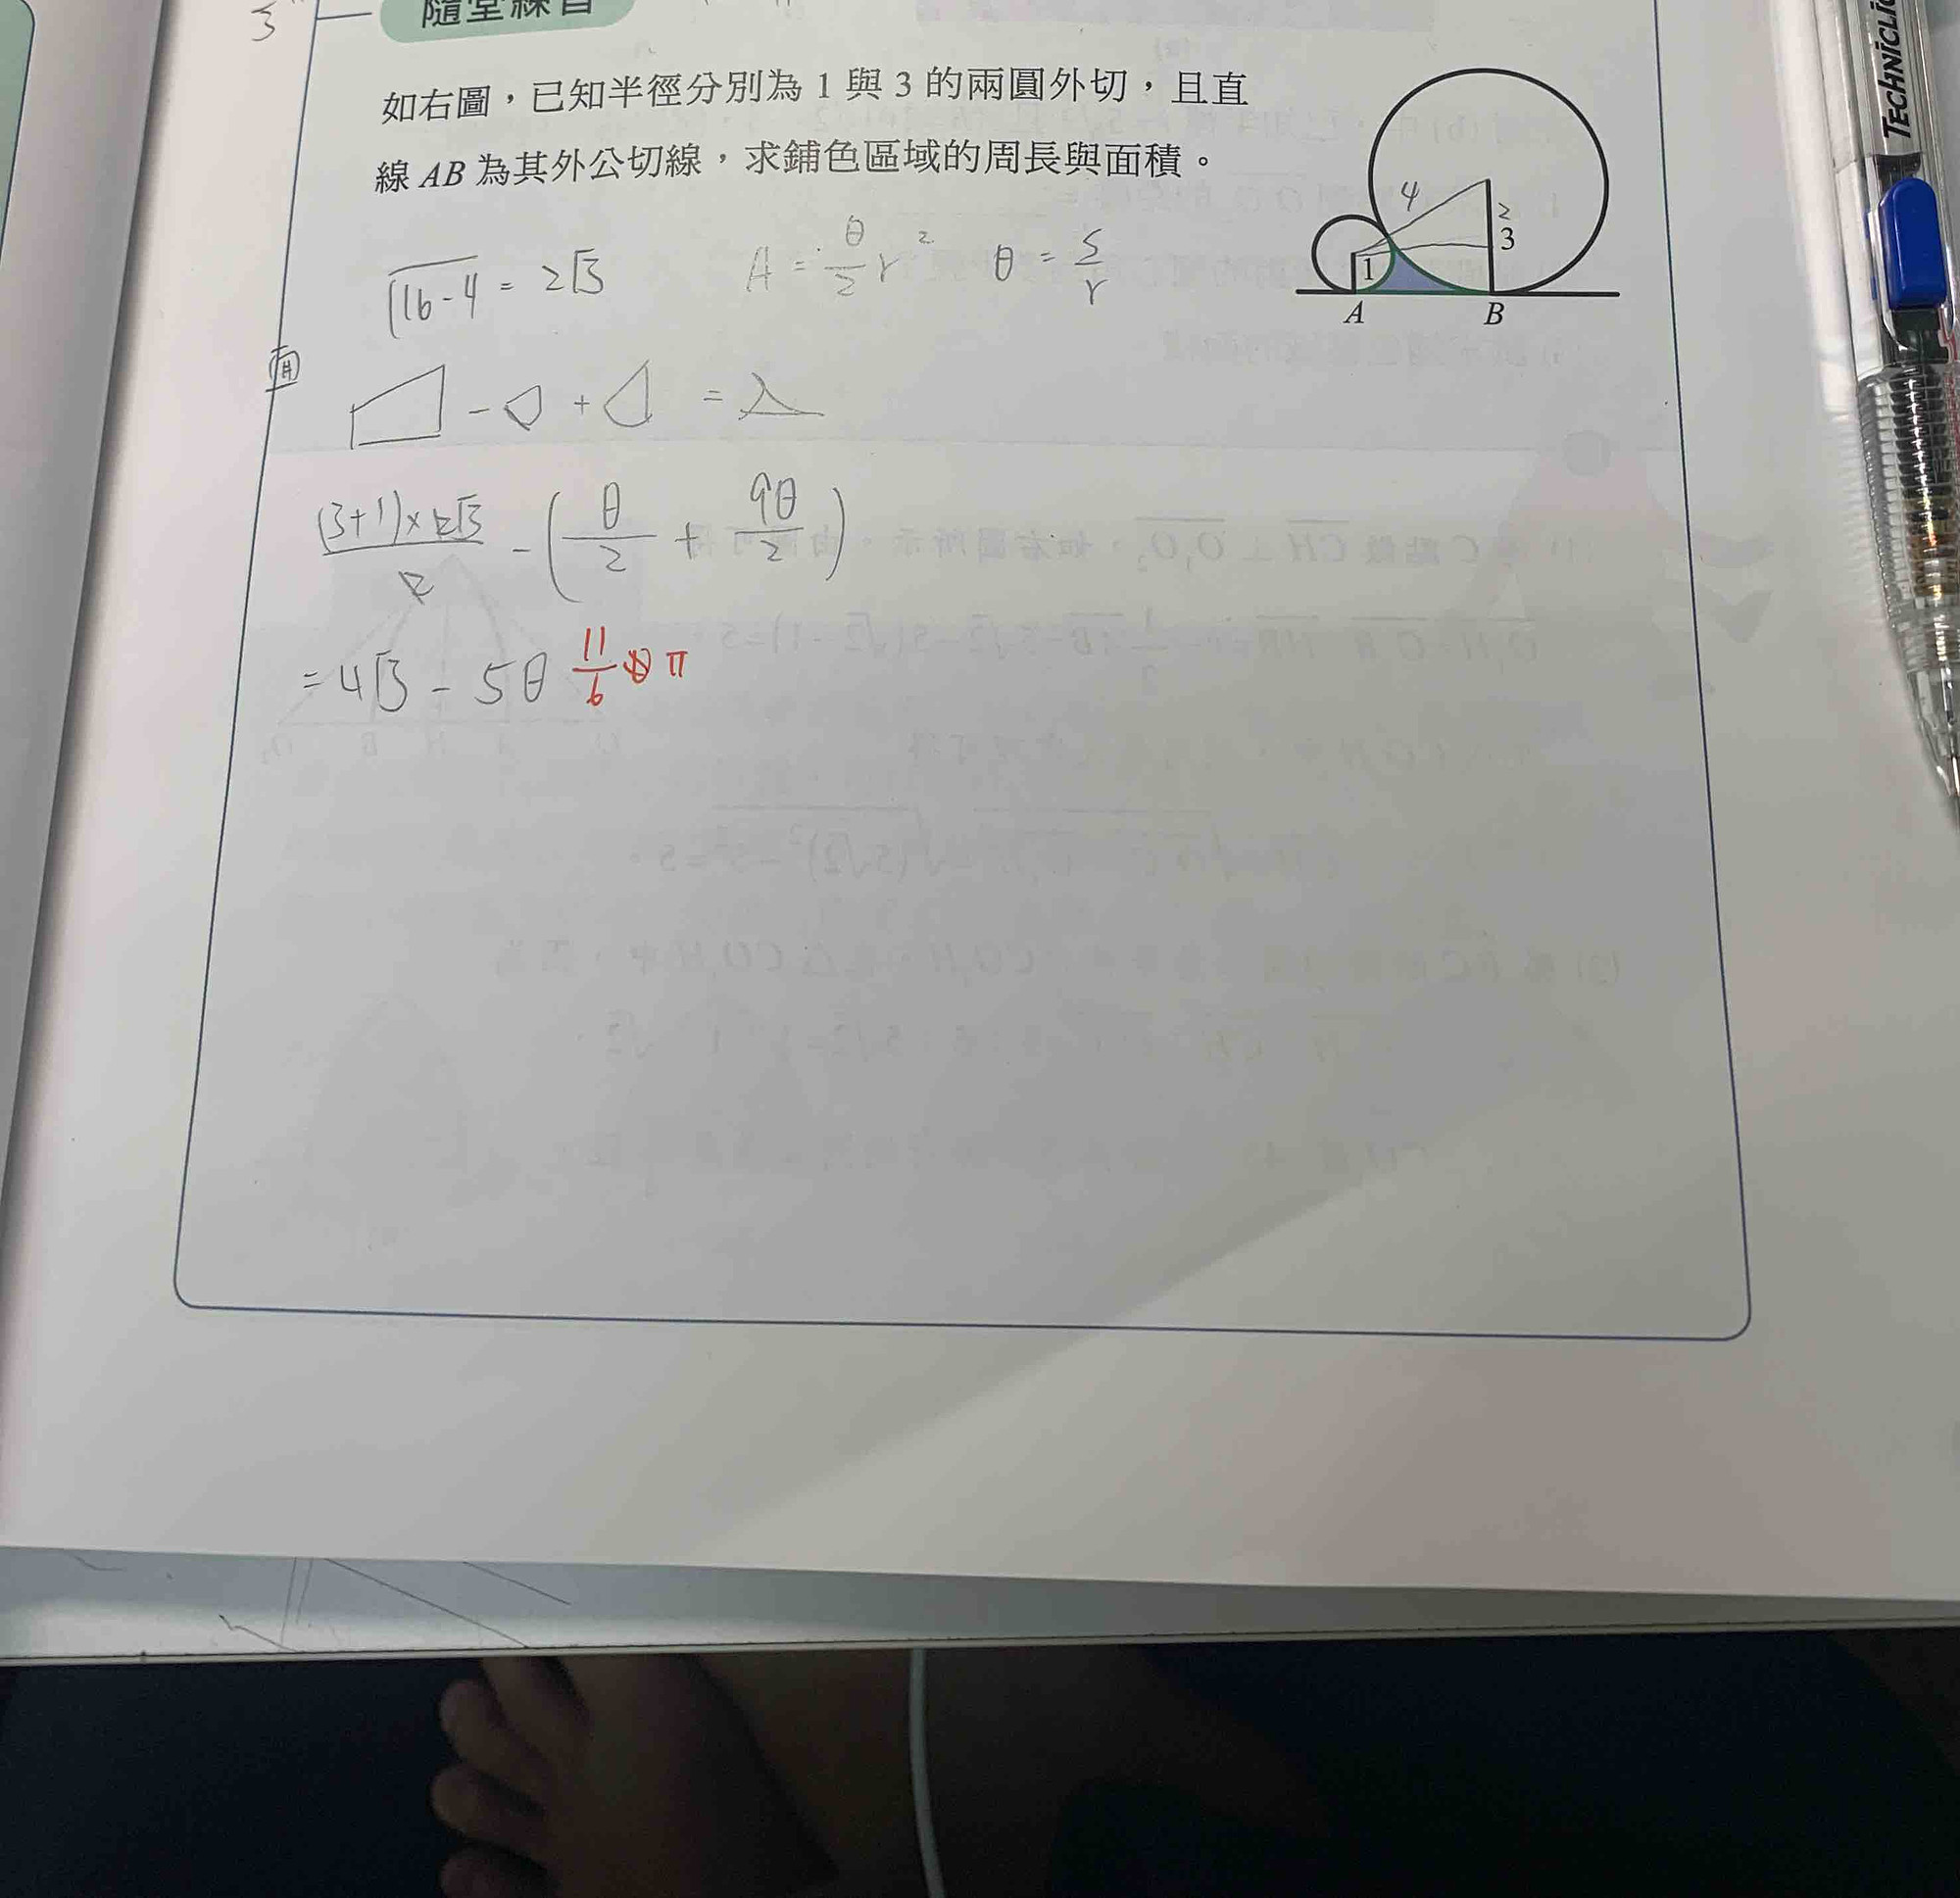 3
隨堂練習
如右圖，已知半徑分別為 1 與 3 的兩圓外切，且直
線 AB 為其外公切線，求鋪色區域的周長與面積。
4
2
3
1
A
B
√16-4 = 2√3
A = θ/2 r² θ = S/r
- + =
(3+1)×2√3/2 - (θ/2 + 9θ/2)
= 4√3 - 5θ 11/6 π
TECHNICLI